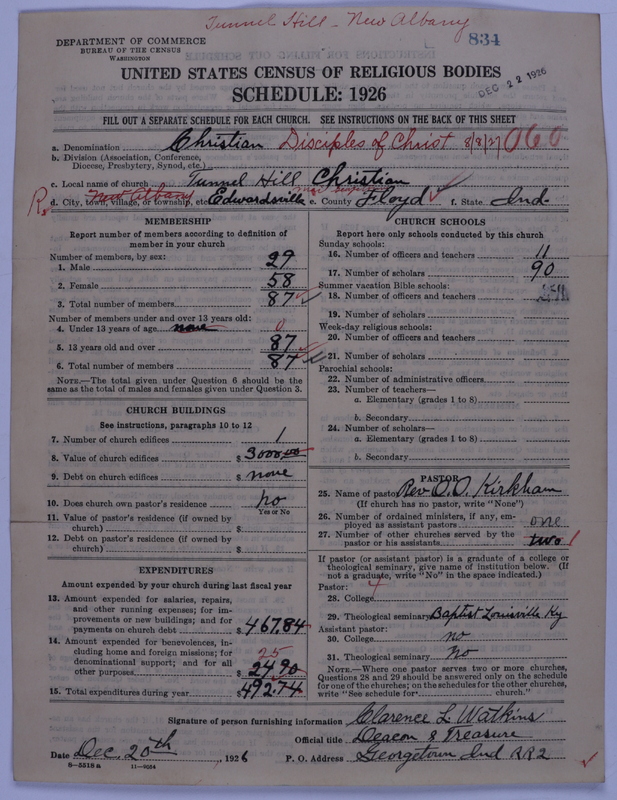 Tunnel Hill - New Albany
834
DEPARTMENT OF COMMERCE
BUREAU OF THE CENSUS
WASHINGTON
UNITED STATES CENSUS OF RELIGIOUS BODIES
DEC 22 1926
SCHEDULE: 1926
FILL OUT A SEPARATE SCHEDULE FOR EACH CHURCH. SEE INSTRUCTIONS ON THE BACK OF THIS SHEET
a. Denomination Christian Disciples of Christ 8/8/27 060
b. Division (Association, Conference, Diocese, Presbytery, Synod, etc.)
c. Local name of church Tunnel Hill Christian
d. City, town, village, or township, etc. New Albany Edwardsville e. County Floyd f. State Ind.
MEMBERSHIP
Report number of members according to definition of
member in your church
Number of members, by sex:
1. Male 29
2. Female 58
3. Total number of members 87
Number of members under and over 13 years old:
4. Under 13 years of age none 0
5. 13 years old and over 87
6. Total number of members 87
NOTE.—The total given under Question 6 should be
same as the total of males and females given under Question 3.
CHURCH BUILDINGS
See instructions, paragraphs 10 to 12
7. Number of church edifices 1
8. Value of church edifices $ 3000.00
9. Debt on church edifices $ none
10. Does church own pastor's residence no
Yes or No
11. Value of pastor's residence (if owned by
church) $
12. Debt on pastor's residence (if owned by
church) $
EXPENDITURES
Amount expended by your church during last fiscal year
13. Amount expended for salaries, repairs,
and other running expenses; for im-
provements or new buildings; and for
payments on church debt $ 467.84
14. Amount expended for benevolences, in-
cluding home and foreign missions; for
denominational support; and for all
other purposes 25 $ 24.90
15. Total expenditures during year $ 492.74
CHURCH SCHOOLS
Report here only schools conducted by this church
Sunday schools:
16. Number of officers and teachers 11
17. Number of scholars 90
Summer vacation Bible schools:
18. Number of officers and teachers
19. Number of scholars
Week-day religious schools:
20. Number of officers and teachers
21. Number of scholars
Parochial schools:
22. Number of administrative officers
23. Number of teachers—
a. Elementary (grades 1 to 8)
b. Secondary
24. Number of scholars—
a. Elementary (grades 1 to 8)
b. Secondary
PASTOR
25. Name of pastor Rev O. O. Kirkham
(If church has no pastor, write "None")
26. Number of ordained ministers, if any, em-
ployed as assistant pastors one
27. Number of other churches served by the
pastor or his assistants two 1
If pastor (or assistant pastor) is a graduate of a college or
theological seminary, give name of institution below. (If
not a graduate, write "No" in the space indicated.)
Pastor:
28. College
29. Theological seminary Baptist Louisville Ky
Assistant pastor:
30. College no
31. Theological seminary No
NOTE.—Where one pastor serves two or more churches,
Questions 28 and 29 should be answered only on the schedule
for one of the churches; on the schedules for the other churches,
write "See schedule for church."
Signature of person furnishing information Clarence L Watkins
Official title Deacon & Treasure
Date Dec. 20th, 1926 P. O. Address Georgetown Ind RR2
8—5518 a 11—9064